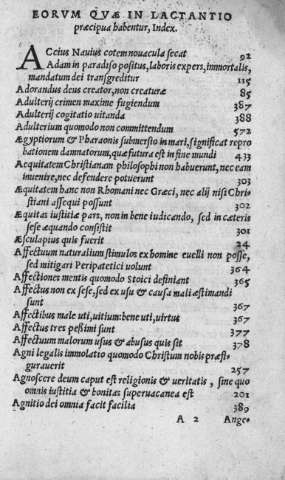 EORVM QVÆ IN LACTANTIO
præcipua habentur, Index.
ACcius Nauius cotem nouacula secat 92
Adam in paradiso positus, laboris expers, immortalis,
mandatum dei transgreditur 115
Adorandus deus creator, non creaturæ 85
Adulterij crimen maxime fugiendum 387
Adulterij cogitatio uitanda 388
Adulterium quomodo non committendum 572
Ægyptiorum & Pharaonis submersio in mari, significat repro
bationem damnatorum, quæ futura est in fine mundi 433
Aequitatem Christianam philosophi non habuerunt, nec eam
inuenire, nec defendere potuerunt 303
Æquitatem hanc non Rhomani nec Græci, nec alij nisi Chri
stiani assequi possunt 302
Æquitas iustitiæ pars, non in bene iudicando, sed in cæteris
sese æquando consistit 301
Æsculapius quis fuerit 24
Affectuum naturalium stimulos ex homine euelli non posse,
sed mitigari Peripatetici uolunt 364
Affectiones mentis quomodo Stoici definiant 365
Affectus non ex sese, sed ex usu & causa mali æstimandi
sunt 367
Affectibus male uti, uitium: bene uti, uirtus 367
Affectus tres pessimi sunt 377
Affectuum malorum usus & abusus quis sit 378
Agni legalis immolatio quomodo Christum nobis præfi-
gurauerit 257
Agnoscere deum caput est religionis & ueritatis, sine quo
omnis iustitia & bonitas superuacanea est 201
Agnitio dei omnia facit facilia 389
A 2 Ange-